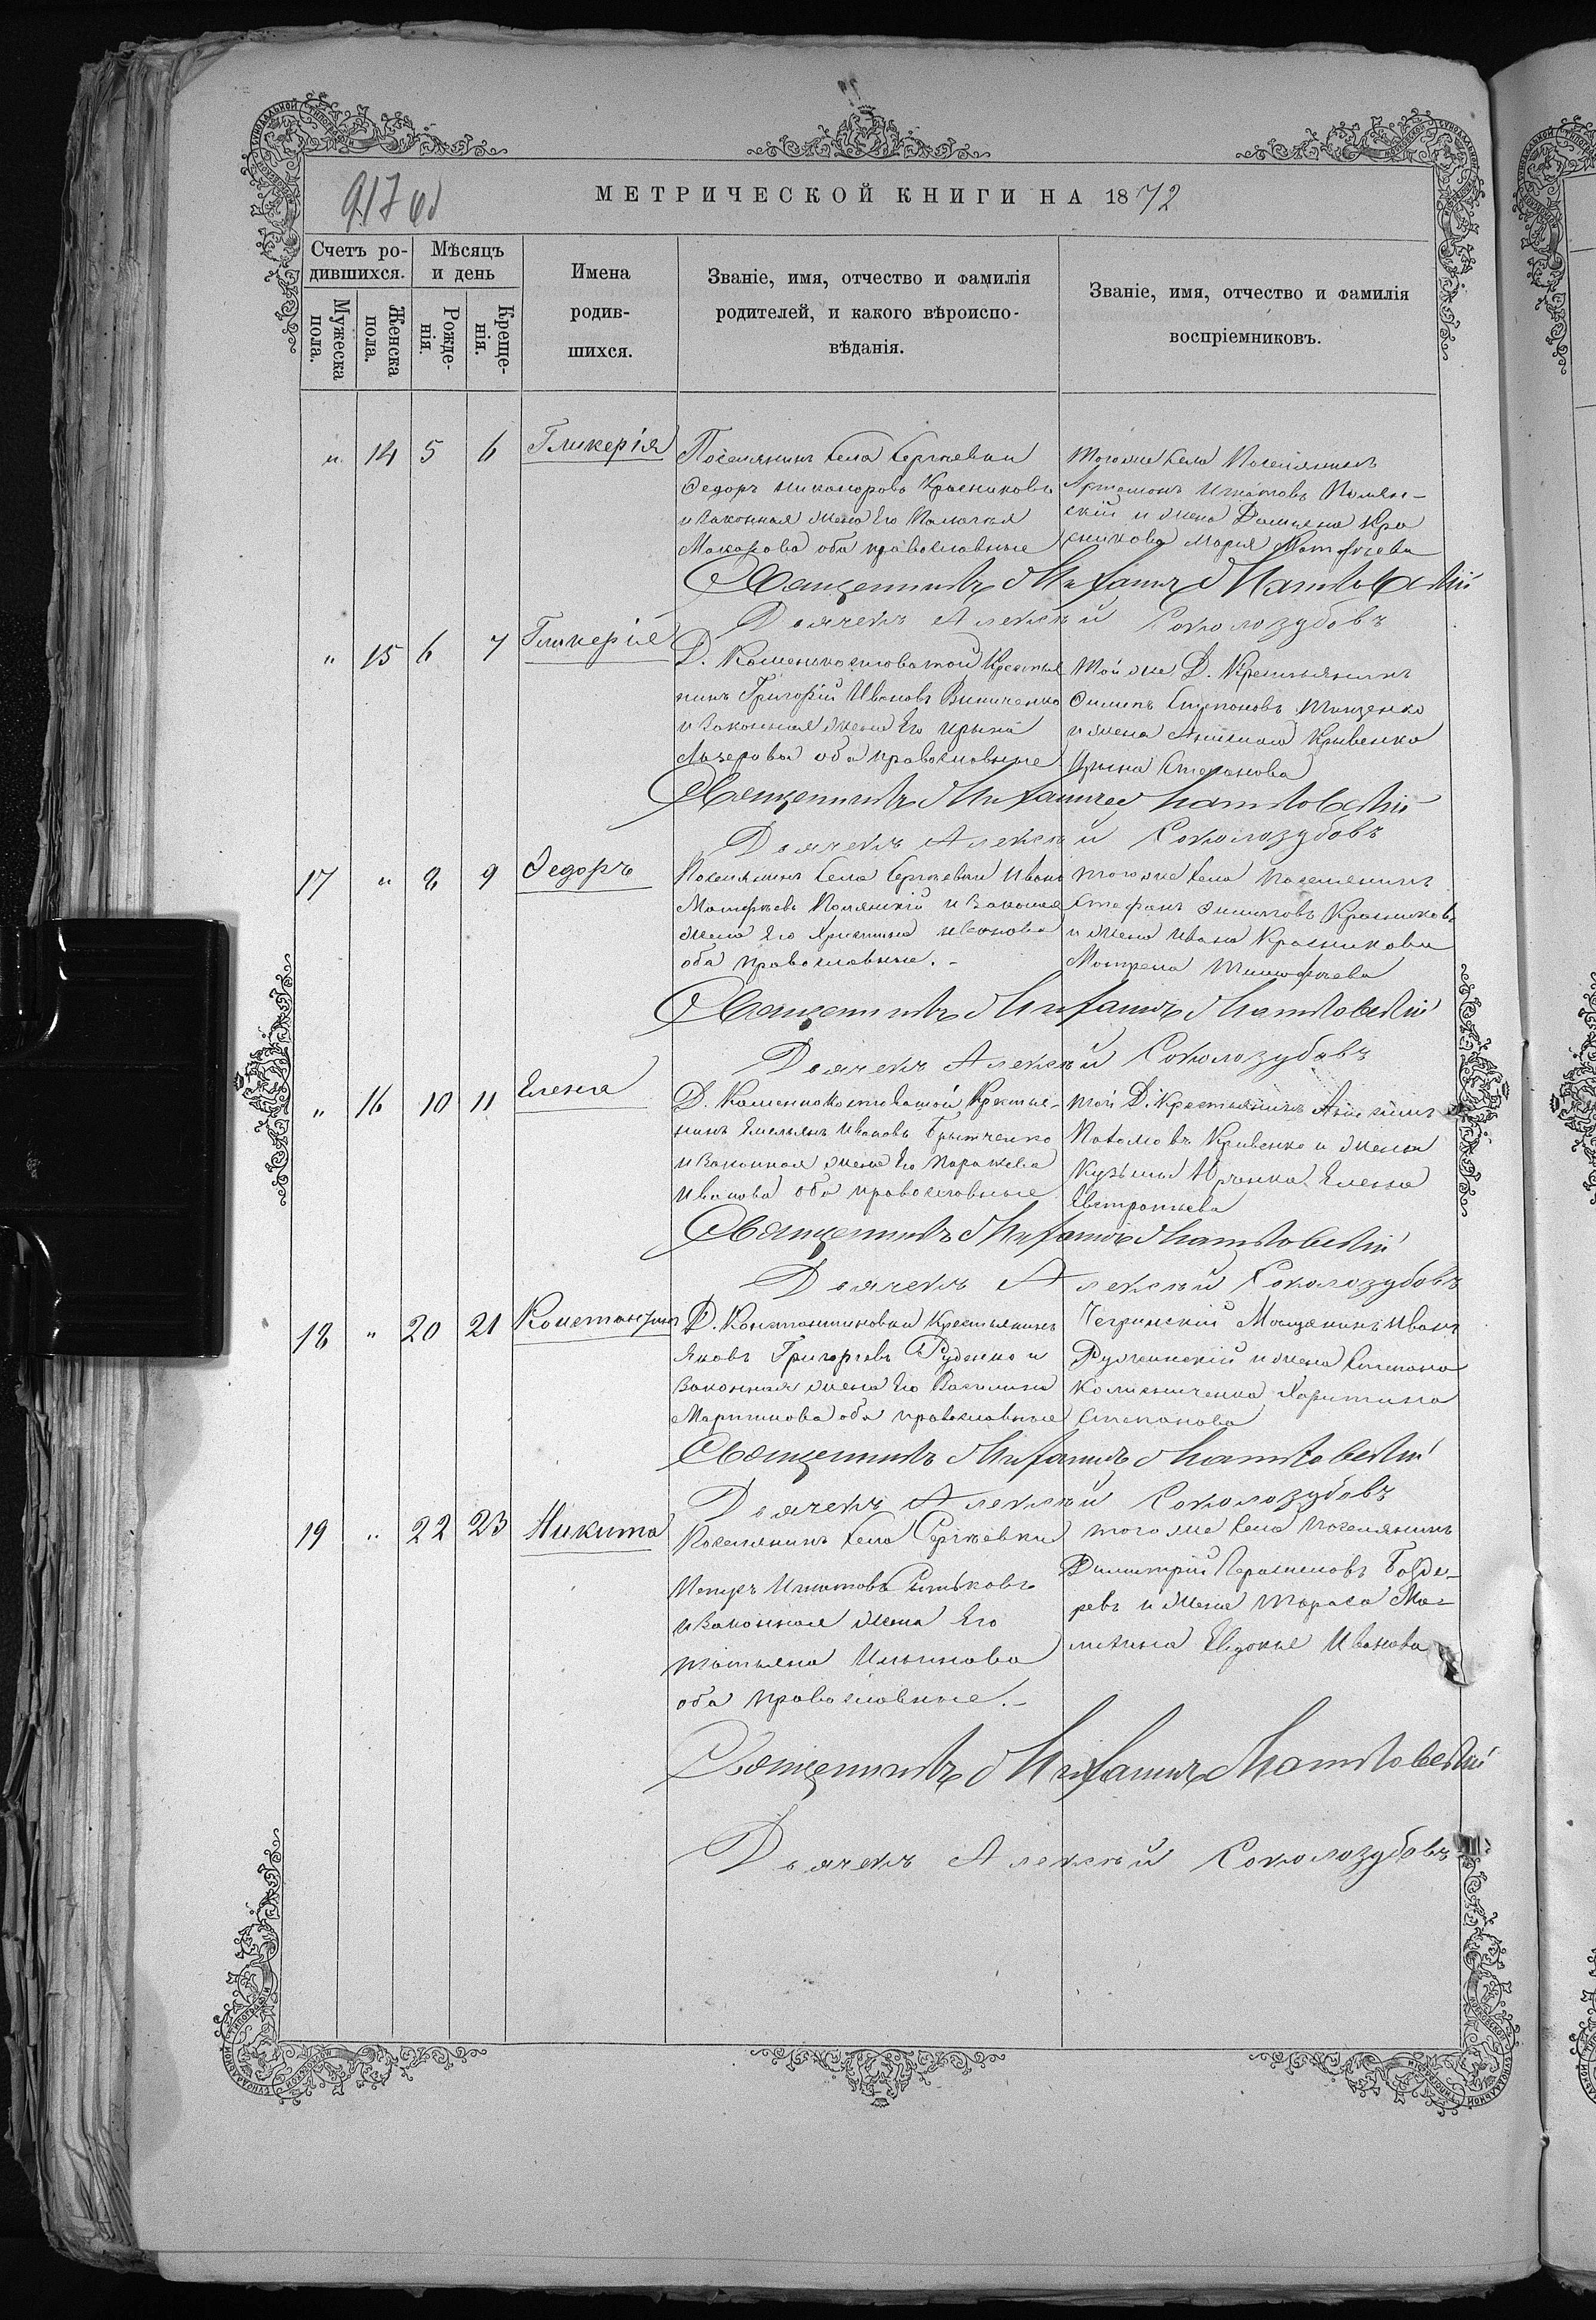 917 об
МЕТРИЧЕСКОЙ КНИГИ НА 1872
Счетъ ро-
дившихся.
Мужеска
пола.
Женска
пола.
Мѣсяцъ
и день
Рожде-
нія.
Креще-
нія.
Имена
родив-
шихся.
Званіе, имя, отчество и фамилія
родителей, и какого вѣроиспо-
вѣданія.
Званіе, имя, отчество и фамилія
воспріемниковъ.
" 14 5 6 Гликерія
Поселянинъ села Сергѣевки
Федоръ Никаноровъ Красниковъ
и законная жена Его Палагея
Макарова оба православные
Того же села Поселянинъ
Артемонъ Игнатовъ Полян-
скій и жена Дамьяна Кра
сникова Марія Матфѣева
Священникъ Михаилъ
Дьячекъ Алексѣй Соколозубовъ
" 15 6 7 Гликерія
Д. Каменноватой Крестья
нинъ Григорій Ивановъ Виниченко
и законная жена Его Ирина
Лазарова оба православные
Той же Д. Крестьянинъ
Филипъ Стефановъ Тищенко
и жена Анисима Кривенко
Ирина Степанова
Священникъ Михаилъ
Дьячекъ Алексѣй Соколозубовъ
17 " 8 9 Федоръ
Поселянинъ села Сергѣевки Иванъ
Матфѣевъ Полянскій и законная
жена Его Христина Иванова
оба православные. -
Того же села поселянинъ
Стефанъ Филиповъ Красниковъ
и жена Ивана Красникова
Матрена Тимофѣева
Священникъ Михаилъ
Дьячекъ Алексѣй Соколозубовъ
" 16 10 11 Елена
Д. Каменноватой Крестья-
нинъ Емельянъ Ивановъ
и законная жена Его Параскева
Иванова оба православные
Той Д. Крестьянинъ Анисимъ
Потаповъ Кривенко и жена
Кузьмы Юрченка Елена
Евтропиева
Священникъ Михаилъ
Дьячекъ Алексѣй Соколозубовъ
18 " 20 21 Константинъ
Д. Константиновки Крестьянинъ
Яковъ Григорьевъ Руденко и
законная жена Его Василина
Мартинова оба православные
Чегринскій Мѣщанинъ Иванъ
и жена Степана
Колисниченка Харитина
Степанова
Священникъ Михаилъ
Дьячекъ Алексѣй Соколозубовъ
19 " 22 23 Никита
Поселянинъ села Сергѣевки
Петръ Игнатовъ Сытьковъ
и законная жена Его
Татьяна Ильинова
оба православные. -
Того же села поселянинъ
Димитрій Герасимовъ
и жена Тараса Ма-
лихина Евдокия Иванова
Священникъ Михаилъ
Дьячекъ Алексѣй Соколозубовъ